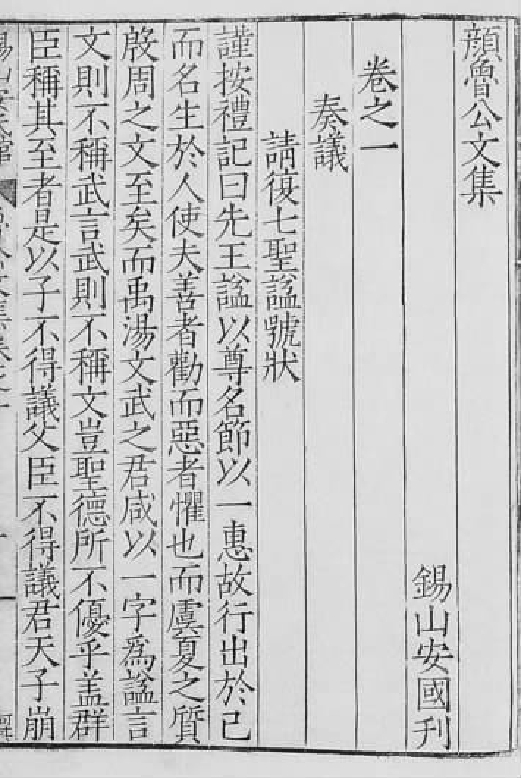 顔魯公文集
錫山安國刋
卷之一
奏議
請復七聖諡號狀
謹按禮記曰先王諡以尊名節以一惠故行出於己
而名生於人使夫善者勸而惡者懼也而虞夏之質
殷周之文至矣而禹湯文武之君咸以一字爲諡言
文則不稱武言武則不稱文豈聖德所不優乎盖群
臣稱其至者是以子不得議父臣不得議君天子崩